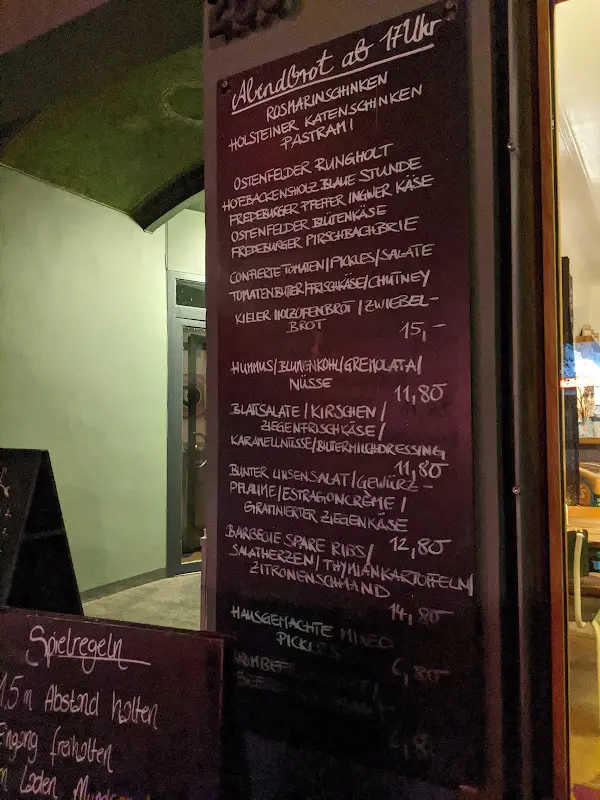 Abendbrot ab 17 Uhr
ROSMARINSCHINKEN
HOLSTEINER KATENSCHINKEN
PASTRAMI
OSTENFELDER RUNGHOLT
HOFBACKENSHOLZ BLAUE STUNDE
FREDEBURGER PFEFFER INGWER KÄSE
OSTENFELDER BLÜTENKÄSE
FREDEBURGER PIRSCHBACHBRIE
CONFIERTE TOMATEN/PICKLES/SALATE
TOMATENBUTTER/FRISCHKÄSE/CHUTNEY
KIELER HOLZOFENBROT / ZWIEBEL-
BROT
15,-
HUMMUS/BLUMENKOHL/GREMOLATA/
NÜSSE
11,80
BLATTSALATE / KIRSCHEN /
ZIEGENFRISCHKÄSE/
KARAMELLNÜSSE/BUTTERMILCHDRESSING
11,80
BUNTER LINSENSALAT/GEWÜRZ-
PFLAUME/ESTRAGONCRÈME /
GRATINIERTER ZIEGENKÄSE
12,80
BARBECUE SPARE RIBS/
SALATHERZEN/THYMIANKARTOFFELN/
ZITRONENSCHMAND
14,80
HAUSGEMACHTE MIXED
PICKLES
6,80
Spielregeln
1,5 m Abstand halten
Eingang freihalten
Laden